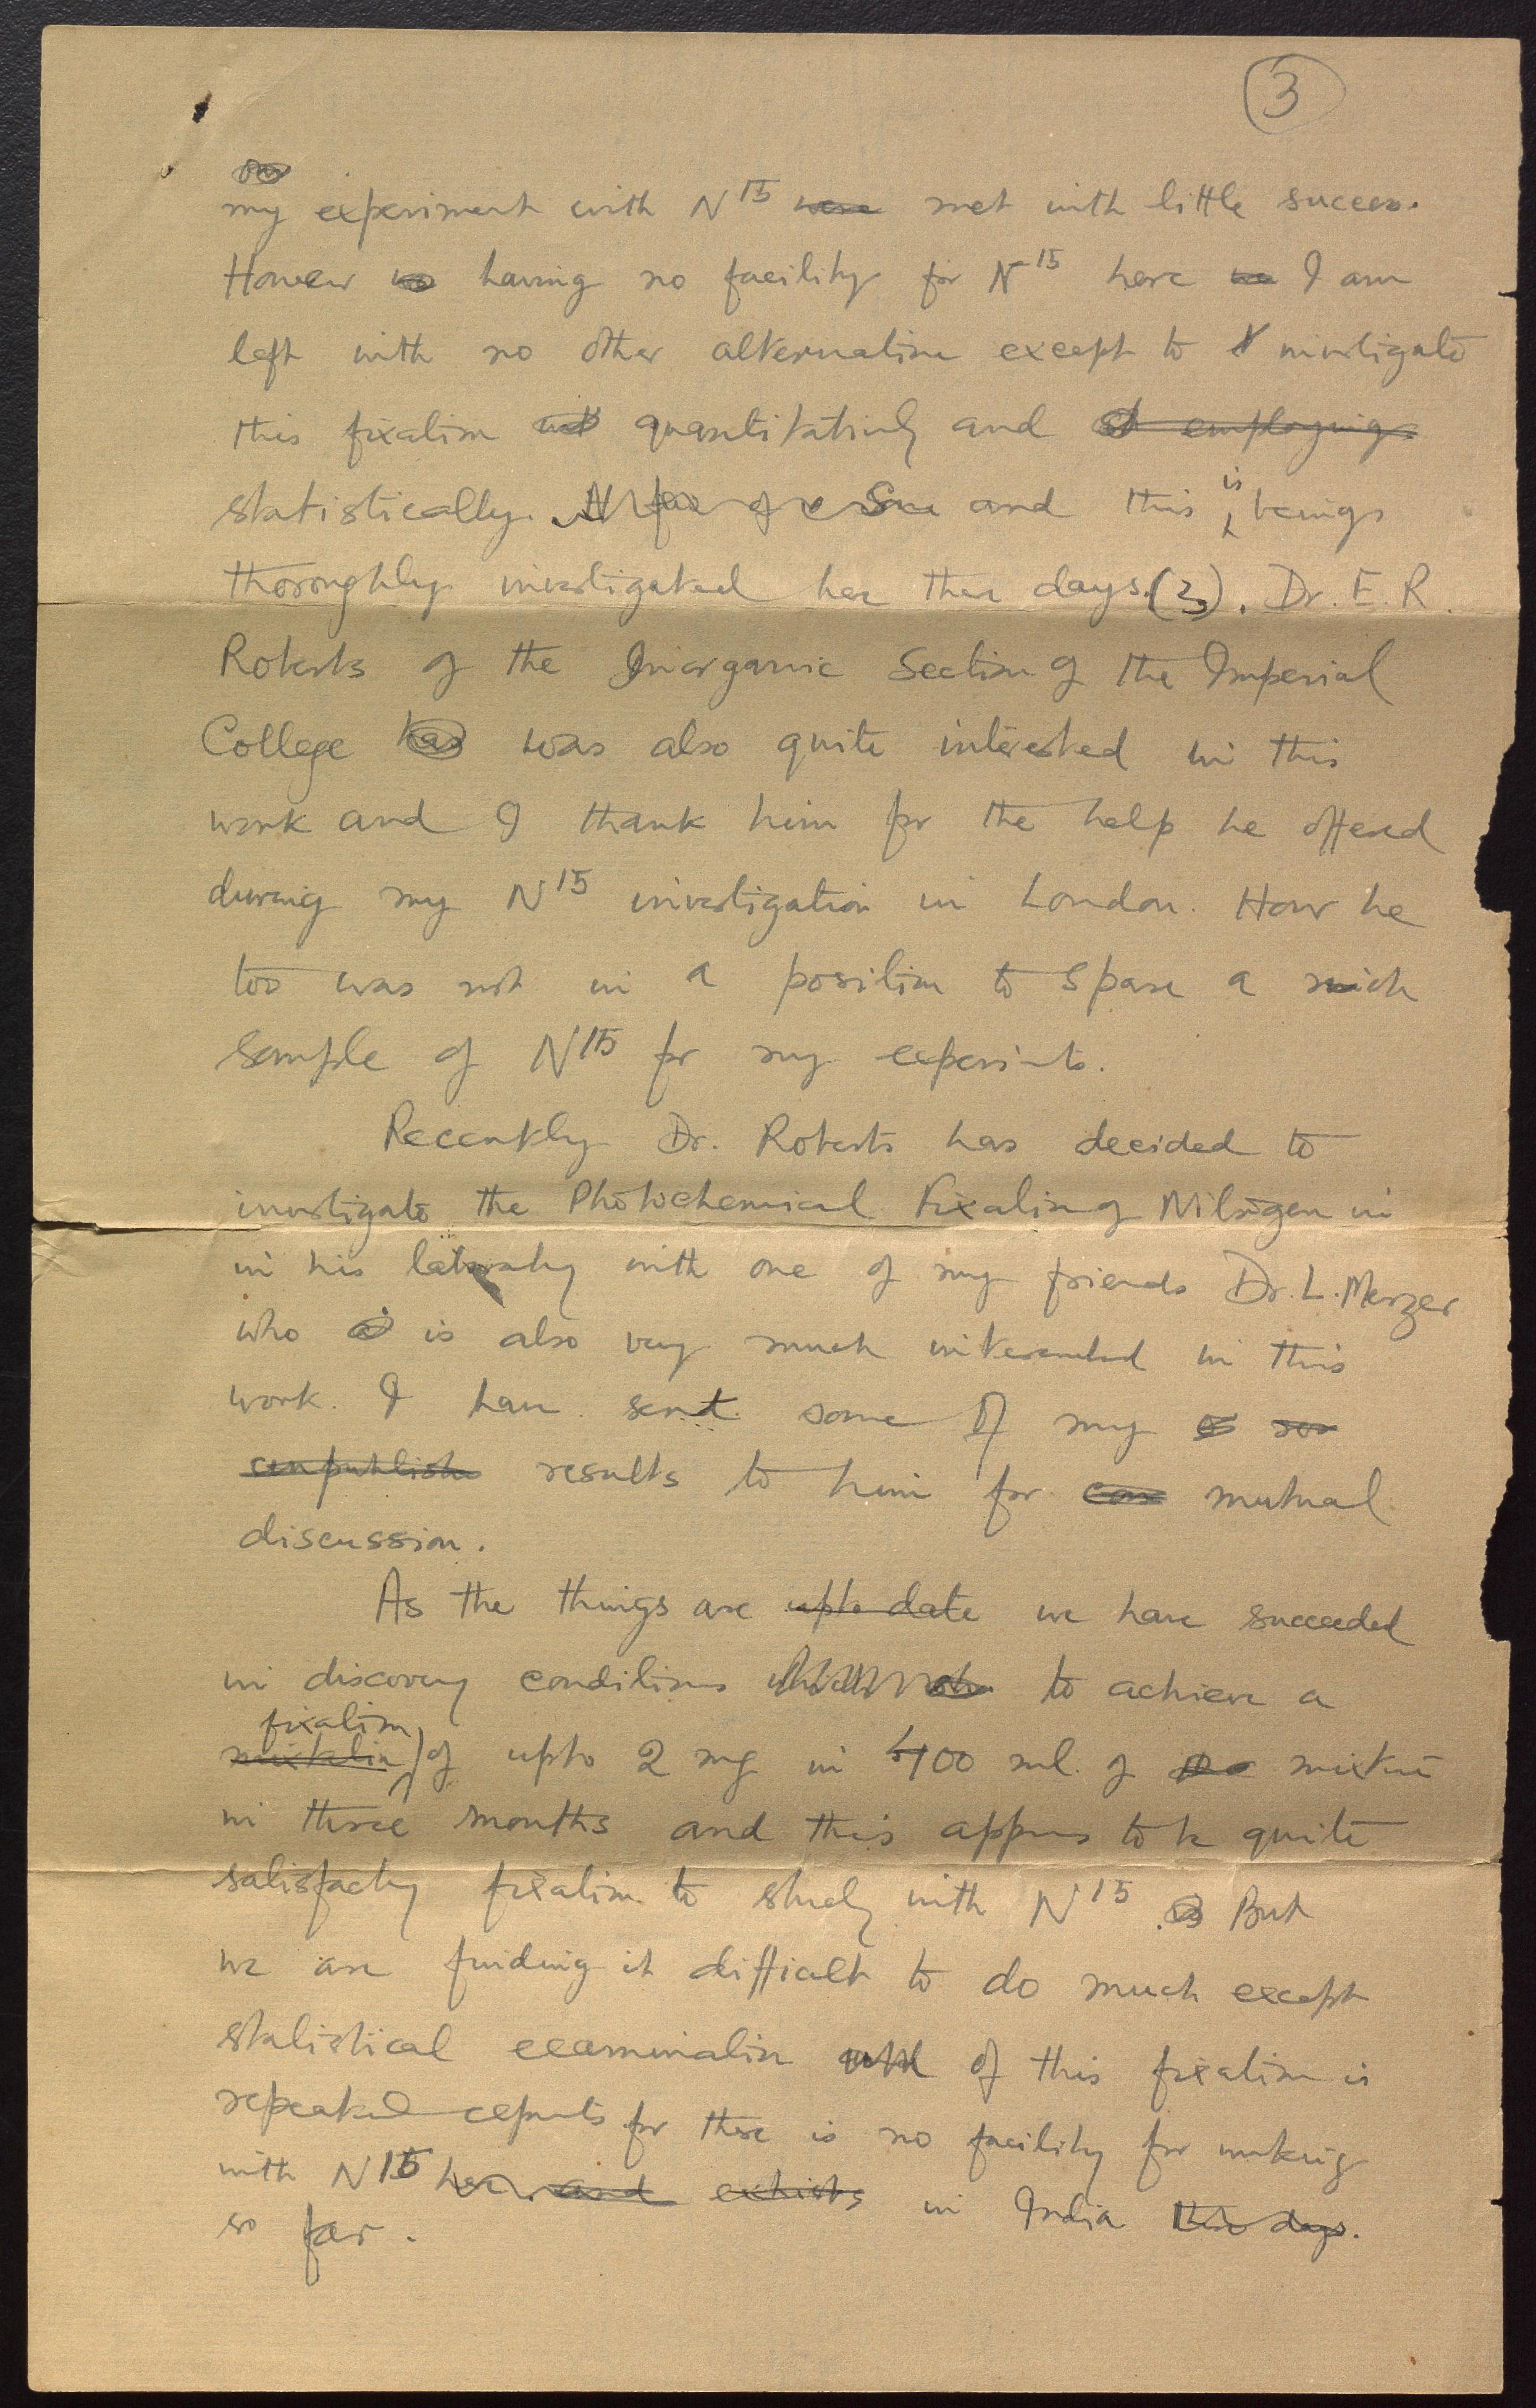 3
my experiment with N15 were met with little success.
However having no facility for N15 here we I am
left with no other alternative except to investigate
this fixation with quantitatively and employing
statistically. and this is being
thoroughly investigated here these days (3). Dr. E. R.
Roberts of the Inorganic Section of the Imperial
College has was also quite interested in this
work and I thank him for the help he offered
during my N15 investigation in London. How he
too was not in a position to spare a rich
sample of N15 for my experints.
Recently Dr. Roberts has decided to
investigate the Photochemical Fixation of Nitrogen in
in his laboratory with one of my friends Dr. L. Merzer
who is also very much interested in this
work. I have sent some of my
unpublish results to him for mutual
discussion.
As the things are upto date we have succeeded
in discovery conditions which to achieve a
fixation
of upto 2 mg in 400 ml. of mixture
in three months and this appers to be quite
satisfacty fixation to study with N15. But
we are finding it difficult to do much except
statistical examination of this fixation is
repeated for there is no facility for making
with N15 here and exhists in India these days.
so far.